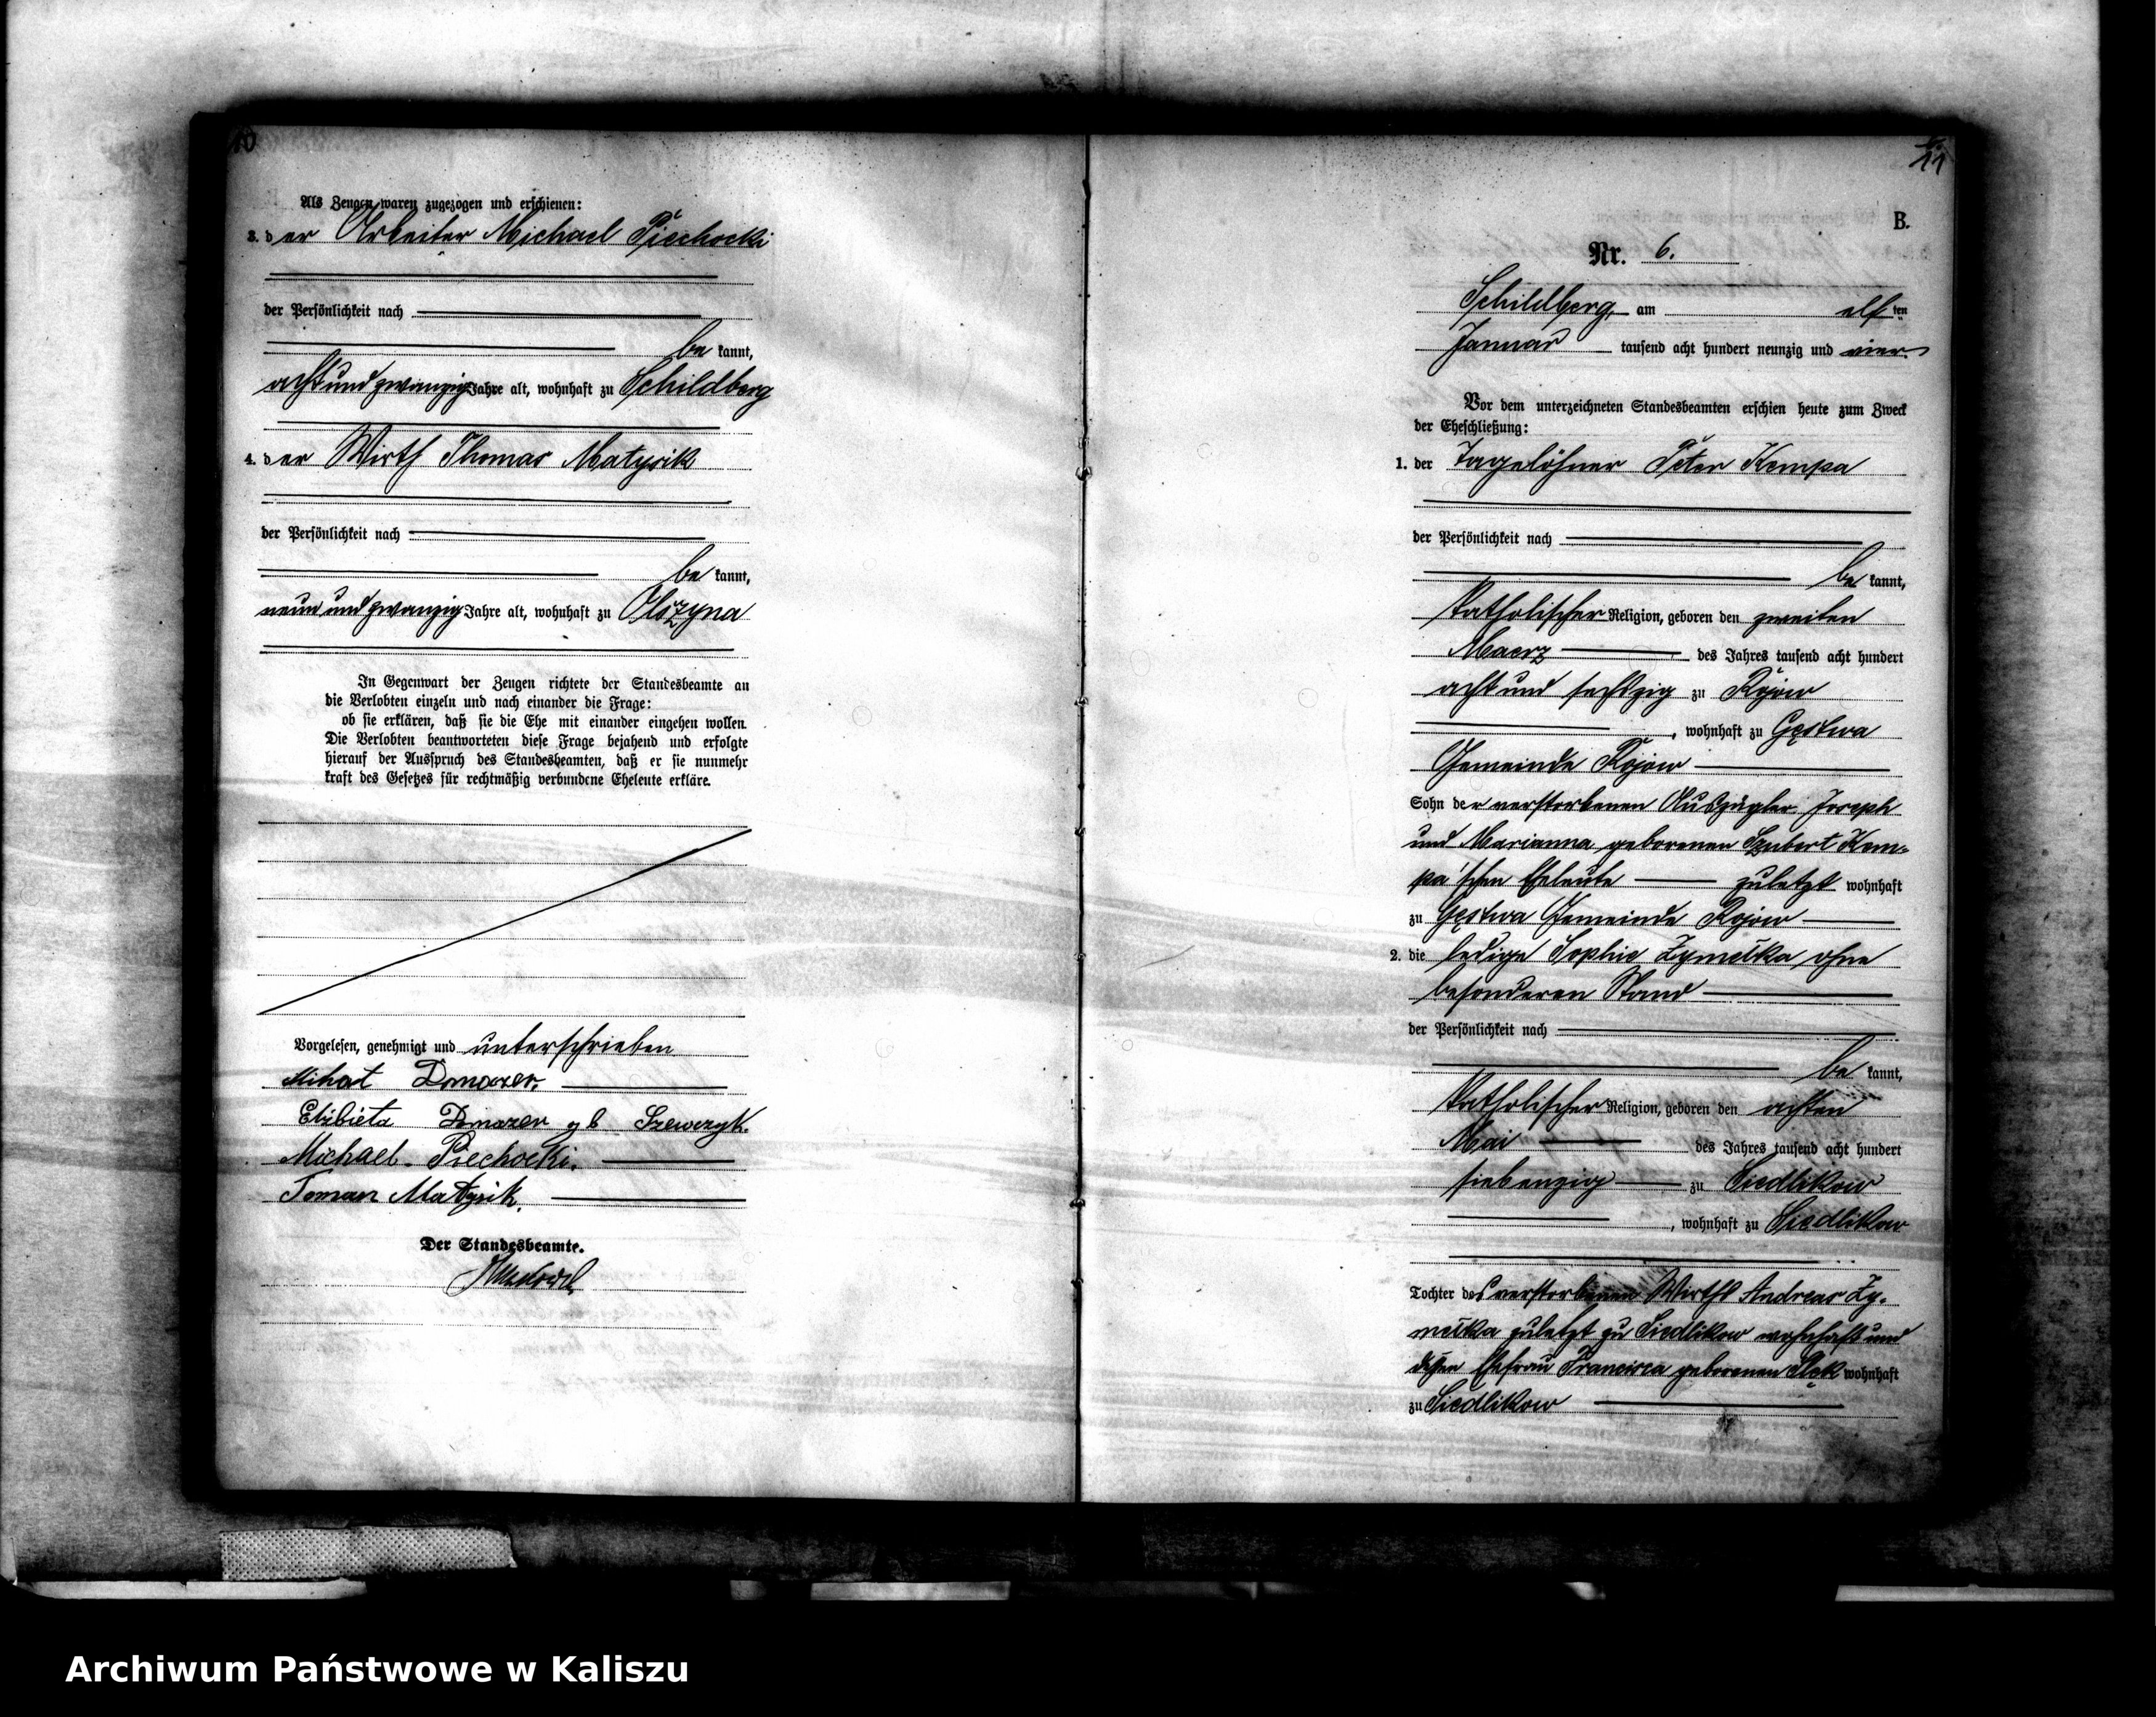 10
Als Zeugen waren zugezogen und erschienen:
3. der Arbeiter Michael Piechocki
der Persönlichkeit nach
be kannt,
acht und zwanzig Jahre alt, wohnhaft zu Schildberg
4. der Wirth Thomas Matysik
der Persönlichkeit nach
be kannt,
neun und zwanzig Jahre alt, wohnhaft zu Olszyna
In Gegenwart der Zeugen richtete der Standesbeamte an
die Verlobten einzeln und nach einander die Frage:
ob sie erklären, daß sie die Ehe mit einander eingehen wollen.
Die Verlobten beantworteten diese Frage bejahend und erfolgte
hierauf der Ausspruch des Standesbeamten, daß er sie nunmehr
kraft des Gesetzes für rechtmäßig verbundene Eheleute erkläre.
Vorgelesen, genehmigt und unterschrieben
Michał Domazer
Elżbieta Domazer gb Szewczyk.
Michael Piechocki.
Toman Matysik.
Der Standesbeamte.
11
B.
Nr. 6.
Schildberg, am elf ten
Januar tausend acht hundert neunzig und vier.
Vor dem unterzeichneten Standesbeamten erschien heute zum Zweck
der Eheschließung:
1. der Tagelöhner Peter Kempa
der Persönlichkeit nach
be kannt,
katholischer Religion, geboren den zweiten
Maerz des Jahres tausend acht hundert
acht und sechzig zu Rojow
, wohnhaft zu Gęstwa
Gemeinde Rojow
Sohn der verstorbenen Auszügler Joseph
und Marianna geborenen Szubert Kem-
pa'schen Eheleute zuletzt wohnhaft
zu Gęstwa Gemeinde Rojow
2. die ledige Sophie Zymełka ohne
besonderen Stand
der Persönlichkeit nach
be kannt,
katholischer Religion, geboren den achten
Mai des Jahres tausend acht hundert
siebenzig zu Siedlikow
, wohnhaft zu Siedlikow
Tochter des verstorbenen Wirths Andreas Zy-
mełka zuletzt zu Siedlikow wohnhaft und
dessen Ehefrau Francisca geborenen wohnhaft
zu Siedlikow
Archiwum Państwowe w Kaliszu